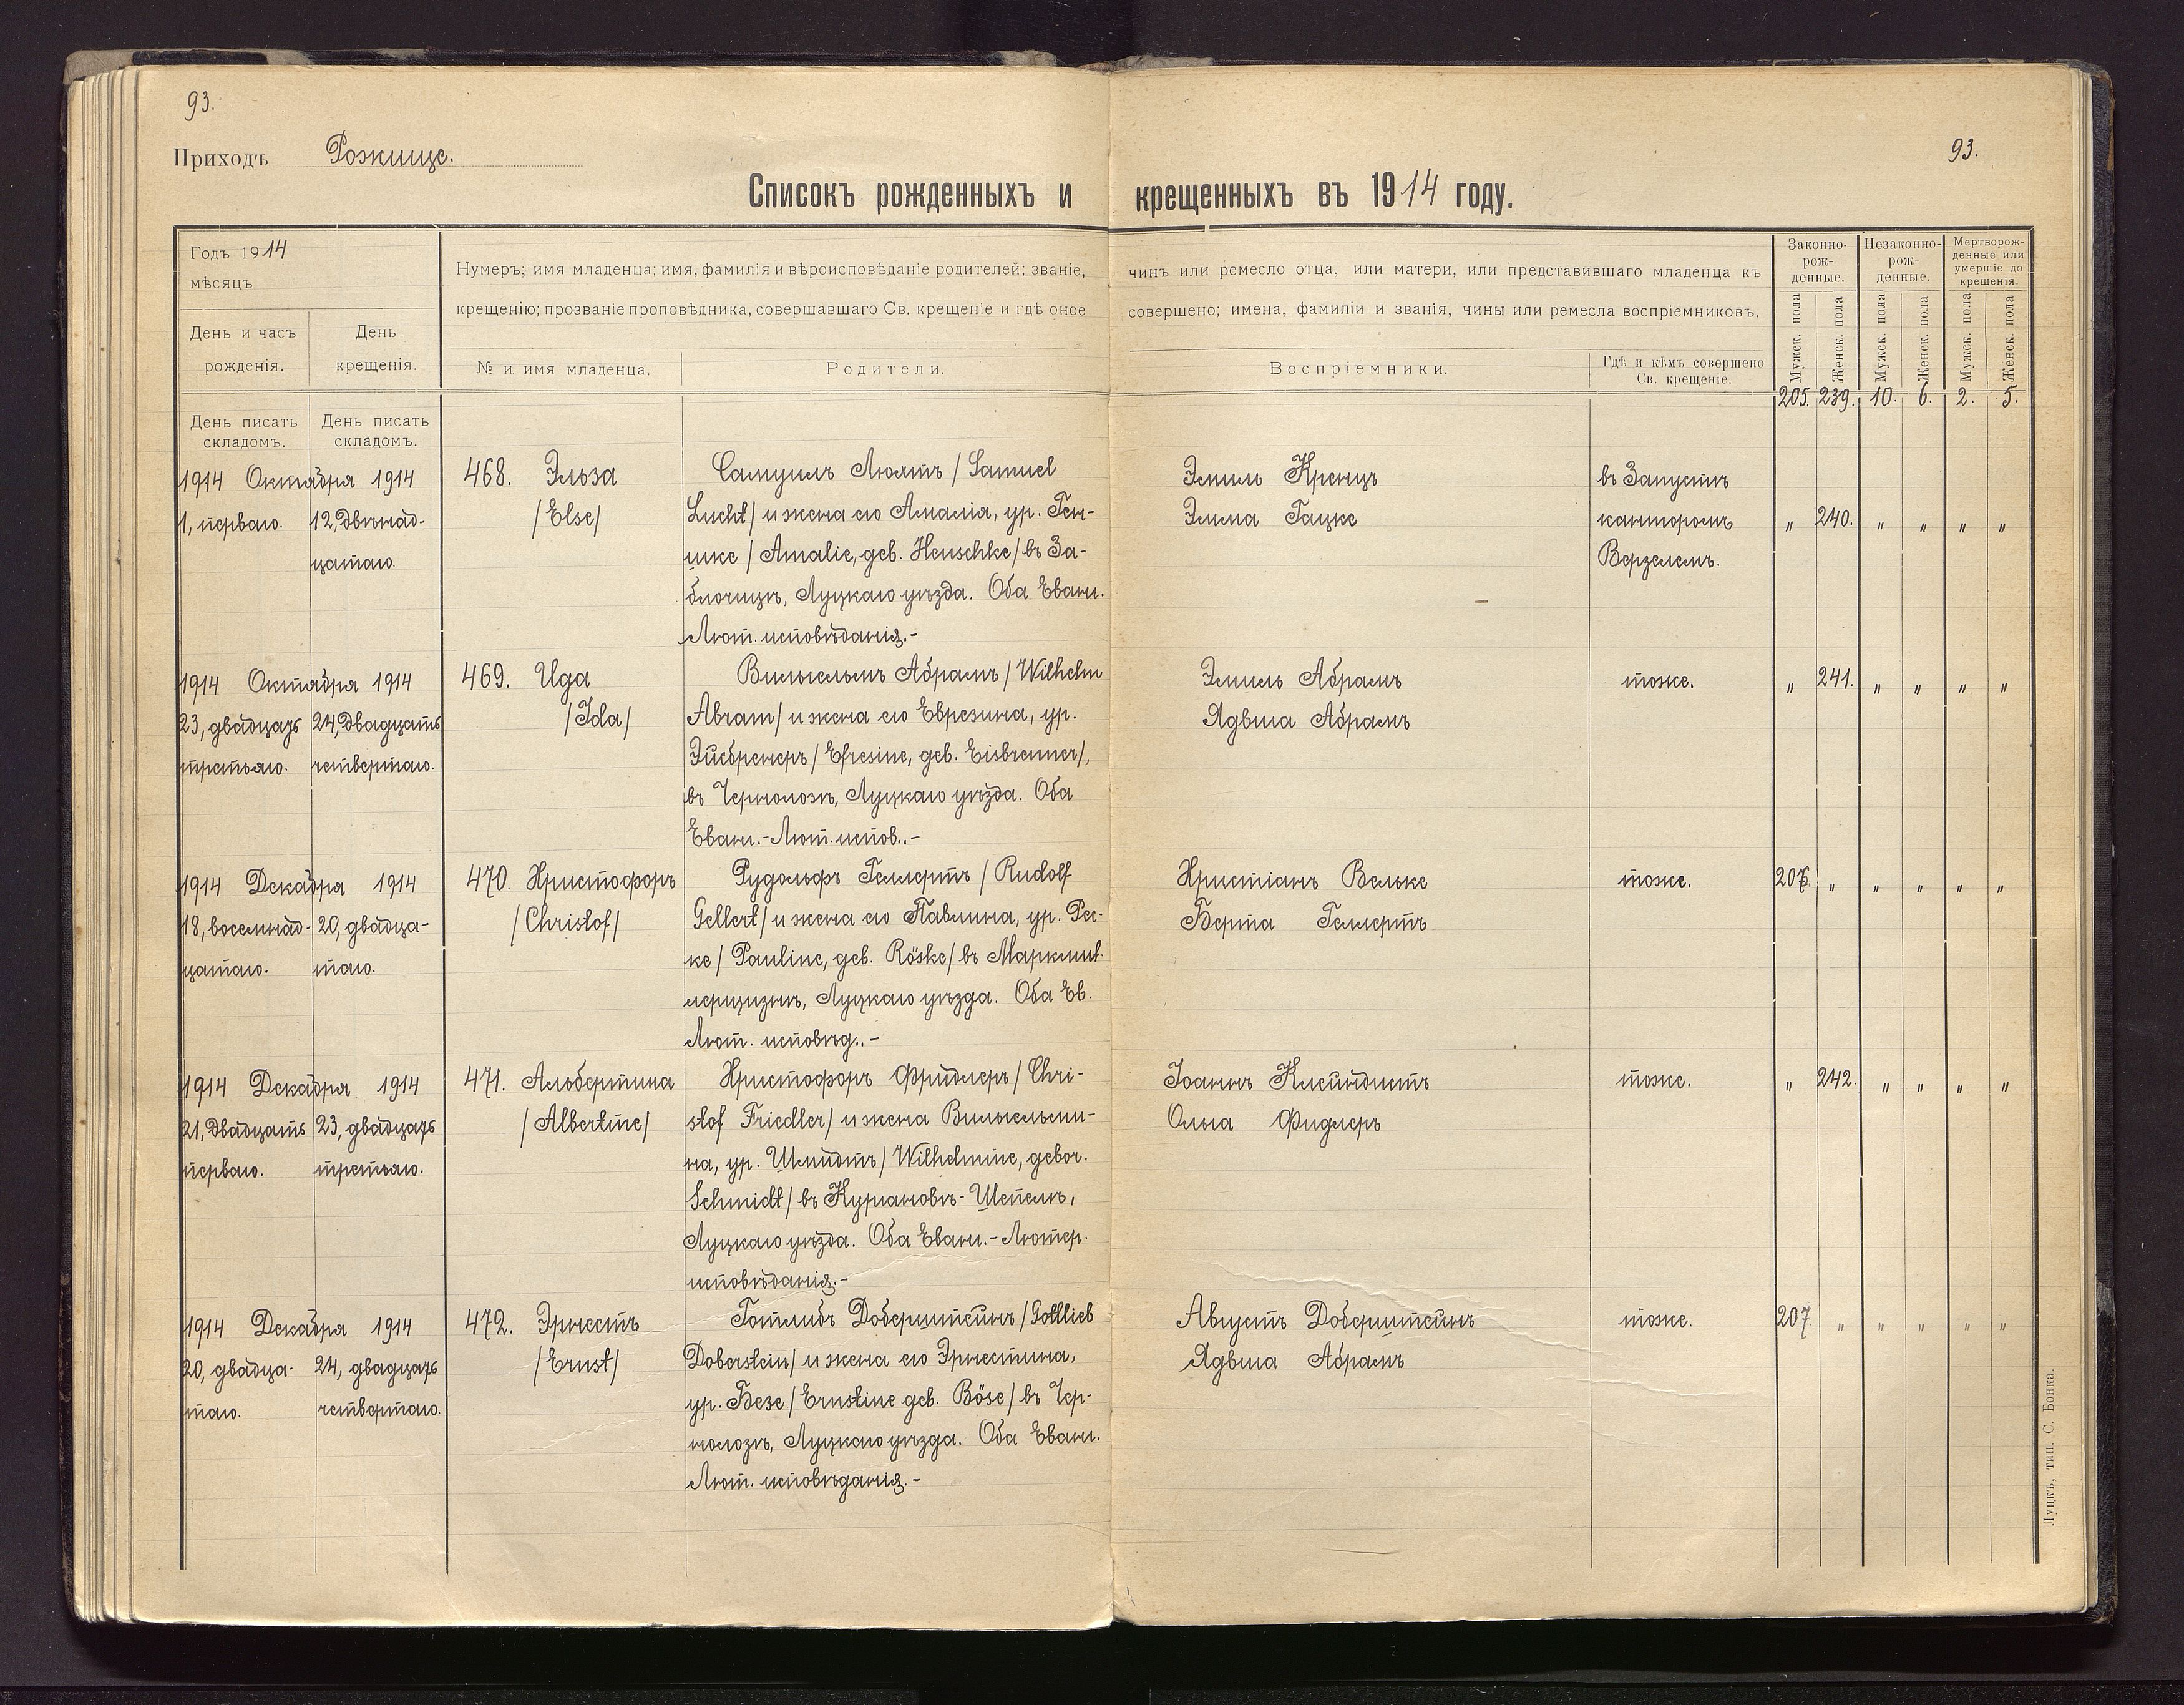 93.
93.
Приходъ Рожище.
Списокъ рожденныхъ и крещенныхъ въ 1914 году.
Годъ 1914
мѣсяцъ
День и часъ
рожденія.
День
крещенія.
Нумеръ; имя младенца; имя, фамилія и вѣроисповѣданіе родителей; званіе, чинъ или ремесло отца, или матери, или представившаго младенца къ
крещенію; прозваніе проповѣдника, совершавшаго Св. крещеніе и гдѣ оное совершено; имена, фамиліи и званія, чины или ремесла воспріемниковъ.
№ и имя младенца.
Родители.
Воспріемники.
Гдѣ и кѣмъ совершено
Св. крещеніе.
Законно-
рож-
денные.
Незаконно-
рож-
денные.
Мертворож-
денные или
умершіе до
крещенія.
Мужск. пола
Женск. пола
Мужск. пола
Женск. пола
Мужск. пола
Женск. пола
205. 239. 10. 6. 2. 5.
День писать
складомъ.
День писать
складомъ.
1914 Октября 1914
1, перваго. 12, двѣнад-
цатаго.
468. Эльза
/Else/
Самуилъ Люхтъ / Samuel
Lucht/ и жена его Амалія, ур. Ген-
шке / Amalie, geb. Henschke/ въ За-
блочицѣ, Луцкаго уѣзда. Оба Еванг.
Лют. исповѣданія.-
Эмиль Кренцъ
Эмма Гацке
въ Запустѣ
канторомъ
Верзелемъ.
" 240. " " " "
1914 Октября 1914
23, двадцать 24, двадцать
третьяго. четвертаго.
469. Ида
/Ida/
Вильгельмъ Абрамъ / Wilhelm
Abram/ и жена его Еврезина, ур.
Эйсбренеръ / Efresine, geb. Eisbrenner/,
въ Чернолозѣ, Луцкаго уѣзда. Оба
Еванг.-Лют. испов..-
Эмиль Абрамъ
Ядвига Абрамъ
тоже.
" 241. " " " "
1914 Декабря 1914
18, восемнад- 20, двадца-
цатаго. таго.
470. Христофоръ
/Christof/
Рудольфъ Геллертъ / Rudolf
Gellert/ и жена его Павлина, ур. Рес-
ке / Pauline, geb. Röske/ въ
Луцкаго уѣзда. Оба Ев.
Лют. исповѣд..-
Христіанъ Вельке
Берта Геллертъ
тоже.
206. " " " " "
1914 Декабря 1914
21, двадцать 23, двадцать
перваго. третьяго.
471. Альбертина
/Albertine/
Христофоръ Фридлеръ / Chri-
stof Friedler/ и жена Вильгельми-
на, ур. Шмидтъ / Wilhelmine, gebor.
Schmidt/ въ Кургановѣ-Шепелѣ,
Луцкаго уѣзда. Оба Еванг.-Лютер.
исповѣданія.-
Іоаннъ Клейндистъ
Ольга Фидлеръ
тоже.
" 242. " " " "
1914 Декабря 1914
20, двадца- 24, двадцать
таго. четвертаго.
472. Эрнестъ
/Ernst/
Готлибъ Доберштейнъ / Gottlieb
Doberstein/ и жена его Эрнестина,
ур. Безе / Ernstine geb. Böse/ въ Чер-
нолозѣ, Луцкаго уѣзда. Оба Еванг.
Лют. исповѣданія.-
Августъ Доберштейнъ
Ядвига Абрамъ
тоже.
207. " " " " "
Луцкъ, тип. С. Бонка.